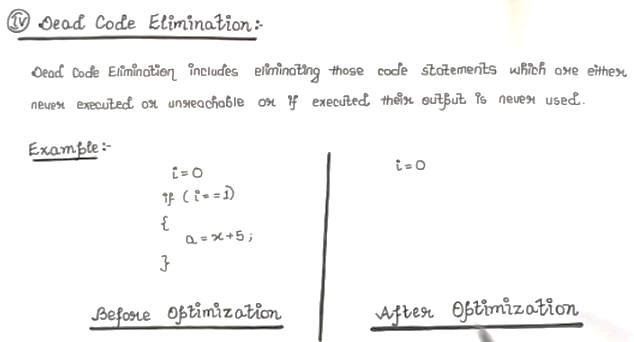 IV Dead Code Elimination:-
Dead Code Elimination includes eliminating those code statements which are either
never executed or unreachable or if executed their output is never used.
Example:-
i=0
if (i==1)
{
a=x+5;
}
Before Optimization
i=0
After Optimization